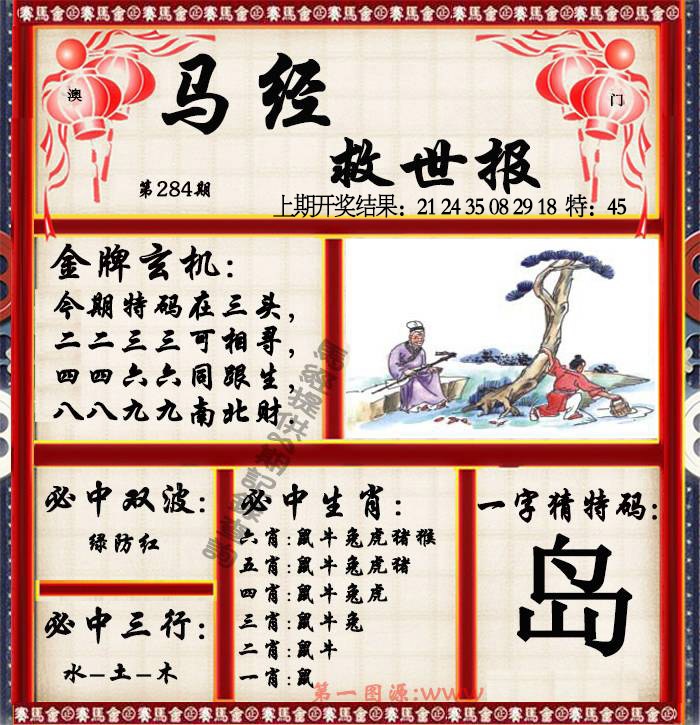 賽馬會金馬賽馬會金馬賽馬會金馬賽馬會金馬賽馬會金
澳
门
马经
救世报
第284期
上期开奖结果：21 24 35 08 29 18 特：45
金牌玄机：
今期特码在三头，
二二三三可相寻，
四四六六同跟生，
八八九九南北财.
必中双波：
绿防红
必中三行：
水-土-木
必中生肖：
六肖：鼠牛兔虎猪猴
五肖：鼠牛兔虎猪
四肖：鼠牛兔虎
三肖：鼠牛兔
二肖：鼠牛
一肖：鼠
一字猜特码：
岛
第一图源：www